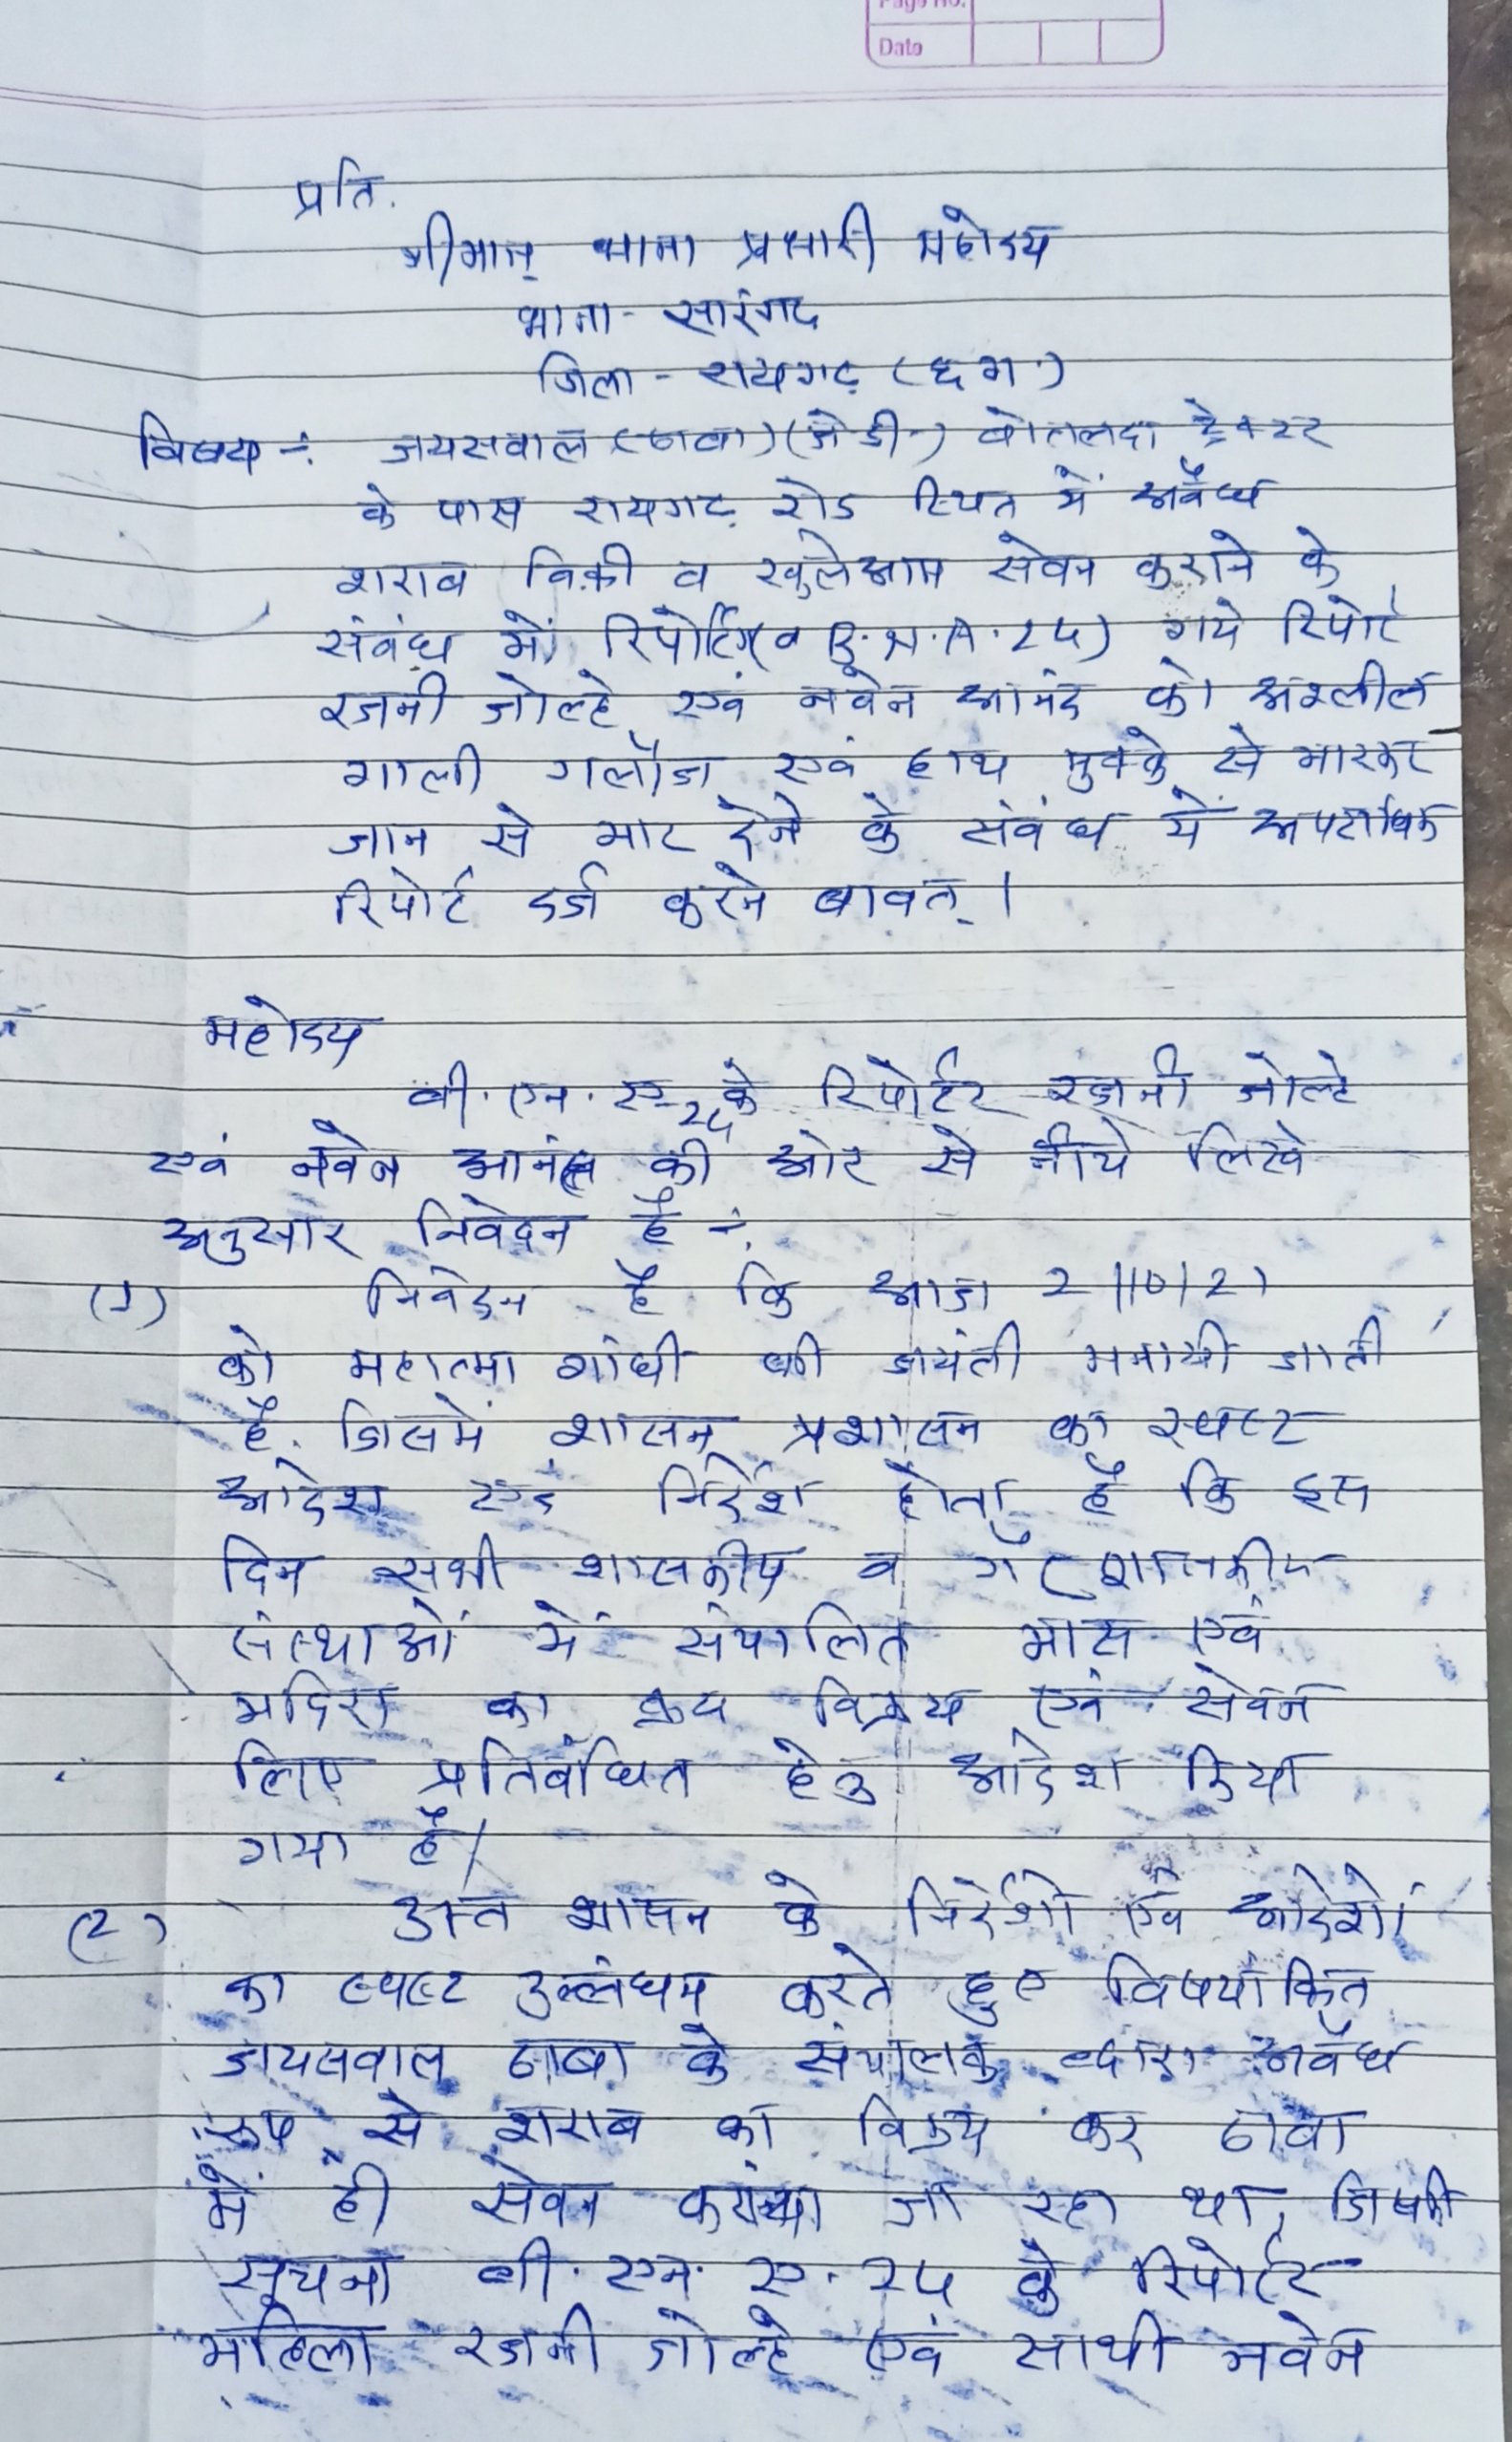 Page No.
Date
प्रति.
श्रीमान् थाना प्रभारी महोदय
थाना - सारंगढ
जिला - रायगढ़ (छ ग.)
विषय :- जयसवाल (ढाबा) (जे डी) बोतलदा ट्रेक्टर
के पास रायगढ़ रोड स्थित में अवैध
शराब बिक्री व खुलेआम सेवन कराने के
संबंध में रिपोर्टिंग (व B.N.A.24) गये रिपोर्ट
रजनी जोल्हे एवं नवेन आनंद को अश्लील
गाली गलौज एवं हाथ मुक्के से मारकर
जान से मार देने के संबंध में अपराधिक
रिपोर्ट दर्ज करने बावत् ।
महोदय
बी. एन. ए 24 के रिपोर्टर रजनी जोल्हे
एवं नवेन आनंद की ओर से नीचे लिखे
अनुसार निवेदन है :-
(1) निवेदन है कि आज 2/10/21
को महात्मा गांधी की जयंती मनायी जाती
है. जिसमें शासन प्रशासन का स्पष्ट
आदेश एवं निर्देश होता है कि इस
दिन सभी शासकीय व गैर शासकीय
संस्थाओं में संचालित मांस एवं
मदिरा का क्रय विक्रय एवं सेवन
लिए प्रतिबंधित हेतु आदेश किया
गया है।
(2) उक्त शासन के निर्देशों एवं आदेशों
का स्पष्ट उल्लंघन करते हुए विषयांकित
जायसवाल ढाबा के संचालक द्वारा अवैध
रूप से शराब का विक्रय कर ढाबा
में ही सेवन कराया जा रहा था, जिसकी
सूचना बी. एन. ए. 24 के रिपोर्टर
महिला रजनी जोल्हे एवं साथी नवेन